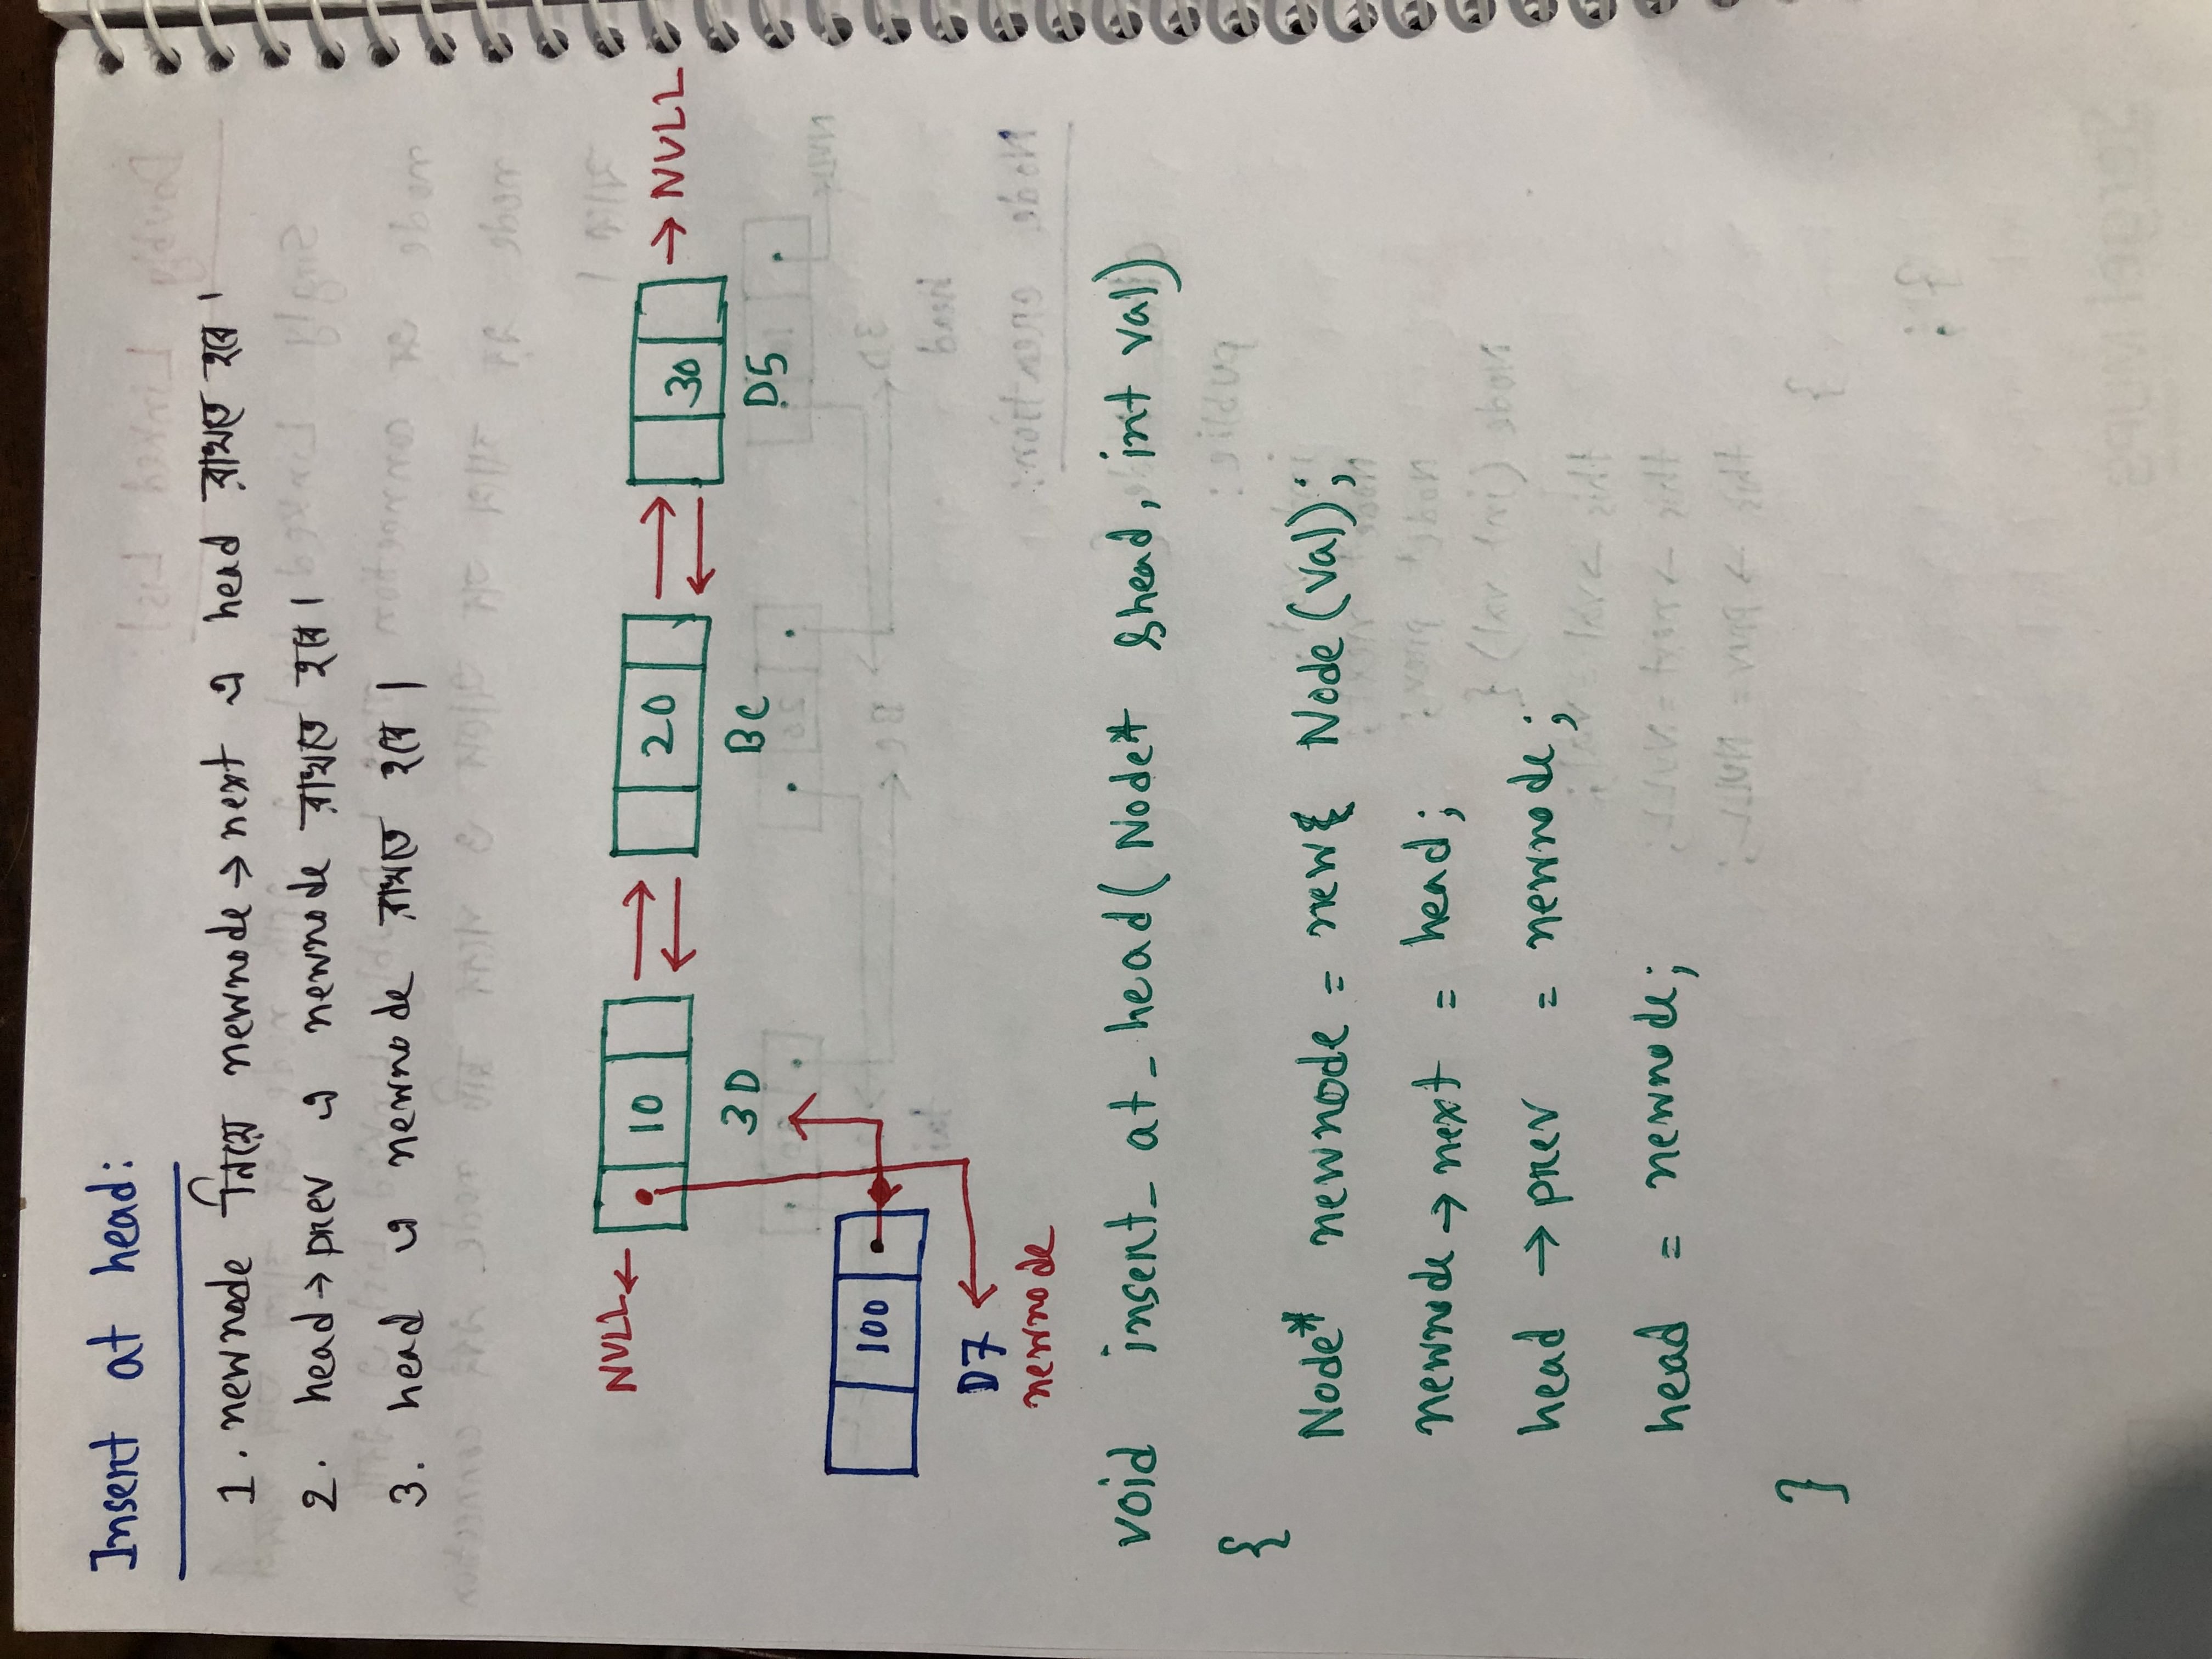 Insert at head:
1. newnode নিয়ে newnode → next এ head রাখতে হবে।
2. head → prev এ newnode রাখতে হবে।
3. head এ newnode রাখতে হবে।
NULL ← 10 20 30 → NULL
3D BC D5
100
D7
newnode
void insert_at_head(Node* &head, int val)
{
Node* newnode = new Node(val);
newnode → next = head;
head → prev = newnode;
head = newnode;
}